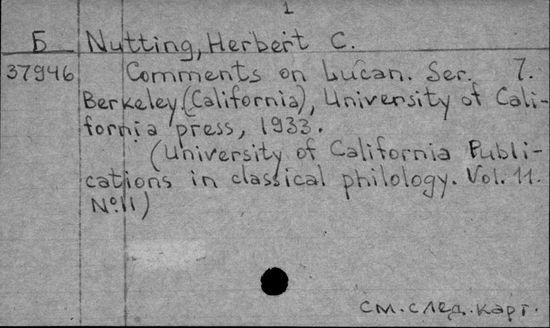 1
Б Nutting, Herbert C.
37946 Comments on Lucan. Ser. 7.
Berkeley (California), University of Cali-
fornia press, 1933.
(University of California Publi-
cations in classical philology. Vol. 11.
№ 11)
см. след. карт.